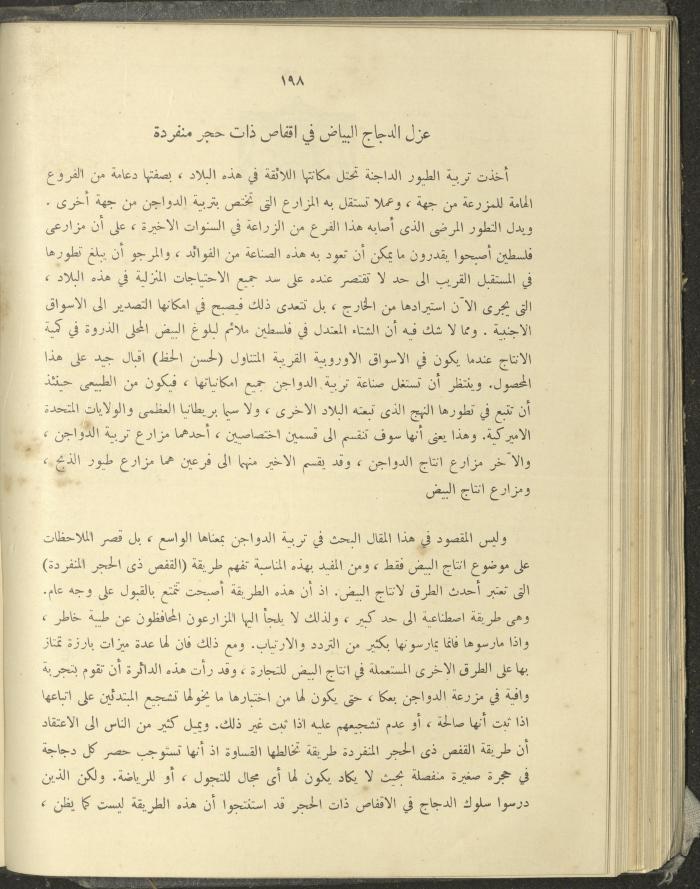 ١٩٨
عزل الدجاج البياض في اقفاص ذات حجر منفردة
أخذت تربية الطيور الداجنة تحتل مكانتها اللائقة في هذه البلاد ، بصفتها دعامة من الفروع
الهامة للمزرعة من جهة ، وعملا تستقل به المزارع التى تختص بتربية الدواجن من جهة أخرى .
ويدل التطور المرضى الذى أصابه هذا الفرع من الزراعة في السنوات الاخيرة ، على أن مزارعى
فلسطين أصبحوا يقدرون ما يمكن أن تعود به هذه الصناعة من الفوائد ، والمرجو أن يبلغ تطورها
في المستقبل القريب الى حد لا تقتصر عنده على سد جميع الاحتياجات المنزلية في هذه البلاد ،
التى يجرى الآن استيرادها من الخارج ، بل تتعدى ذلك فيصبح في امكانها التصدير الى الاسواق
الاجنبية . ومما لا شك فيه أن الشتاء المعتدل في فلسطين ملائم لبلوغ البيض المحلى الذروة في كمية
الانتاج عندما يكون في الاسواق الاوروبية القريبة المتناول (لحسن الحظ) اقبال جيد على هذا
المحصول. وينتظر أن تستغل صناعة تربية الدواجن جميع امكانياتها ، فيكون من الطبيعى حينئذ
أن تتبع في تطورها النهج الذى تبعته البلاد الاخرى ، ولا سيما بريطانيا العظمى والولايات المتحدة
الاميركية. وهذا يعنى أنها سوف تنقسم الى قسمين اختصاصيين ، أحدهما مزارع تربية الدواجن ،
والآخر مزارع انتاج الدواجن ، وقد يقسم الاخير منهما الى فرعين هما مزارع طيور الذبح ،
ومزارع انتاج البيض
وليس المقصود في هذا المقال البحث في تربية الدواجن بمعناها الواسع ، بل قصر الملاحظات
على موضوع انتاج البيض فقط ، ومن المفيد بهذه المناسبة تفهم طريقة (القفص ذى الحجر المنفردة)
التى تعتبر أحدث الطرق لانتاج البيض. اذ أن هذه الطريقة أصبحت تتمتع بالقبول على وجه عام.
وهى طريقة اصطناعية الى حد كبير ، ولذلك لا يلجأ اليها المزارعون المحافظون عن طيبة خاطر ،
واذا مارسوها فانما يمارسونها بكثير من التردد والارتياب. ومع ذلك فان لها عدة ميزات بارزة تمتاز
بها على الطرق الاخرى المستعملة في انتاج البيض للتجارة ، وقد رأت هذه الدائرة أن تقوم بتجربة
وافية في مزرعة الدواجن بعكا ، حتى يكون لها من اختبارها ما يخولها تشجيع المبتدئين على اتباعها
اذا ثبت أنها صالحة ، أو عدم تشجيعهم عليه اذا ثبت غير ذلك. ويميل كثير من الناس الى الاعتقاد
أن طريقة القفص ذى الحجر المنفردة طريقة تخالطها القساوة اذ أنها تستوجب حصر كل دجاجة
في حجرة صغيرة منفصلة بحيث لا يكاد يكون لها أى مجال للتجول ، أو للرياضة. ولكن الذين
درسوا سلوك الدجاج في الاقفاص ذات الحجر قد استنتجوا أن هذه الطريقة ليست كما يظن ،